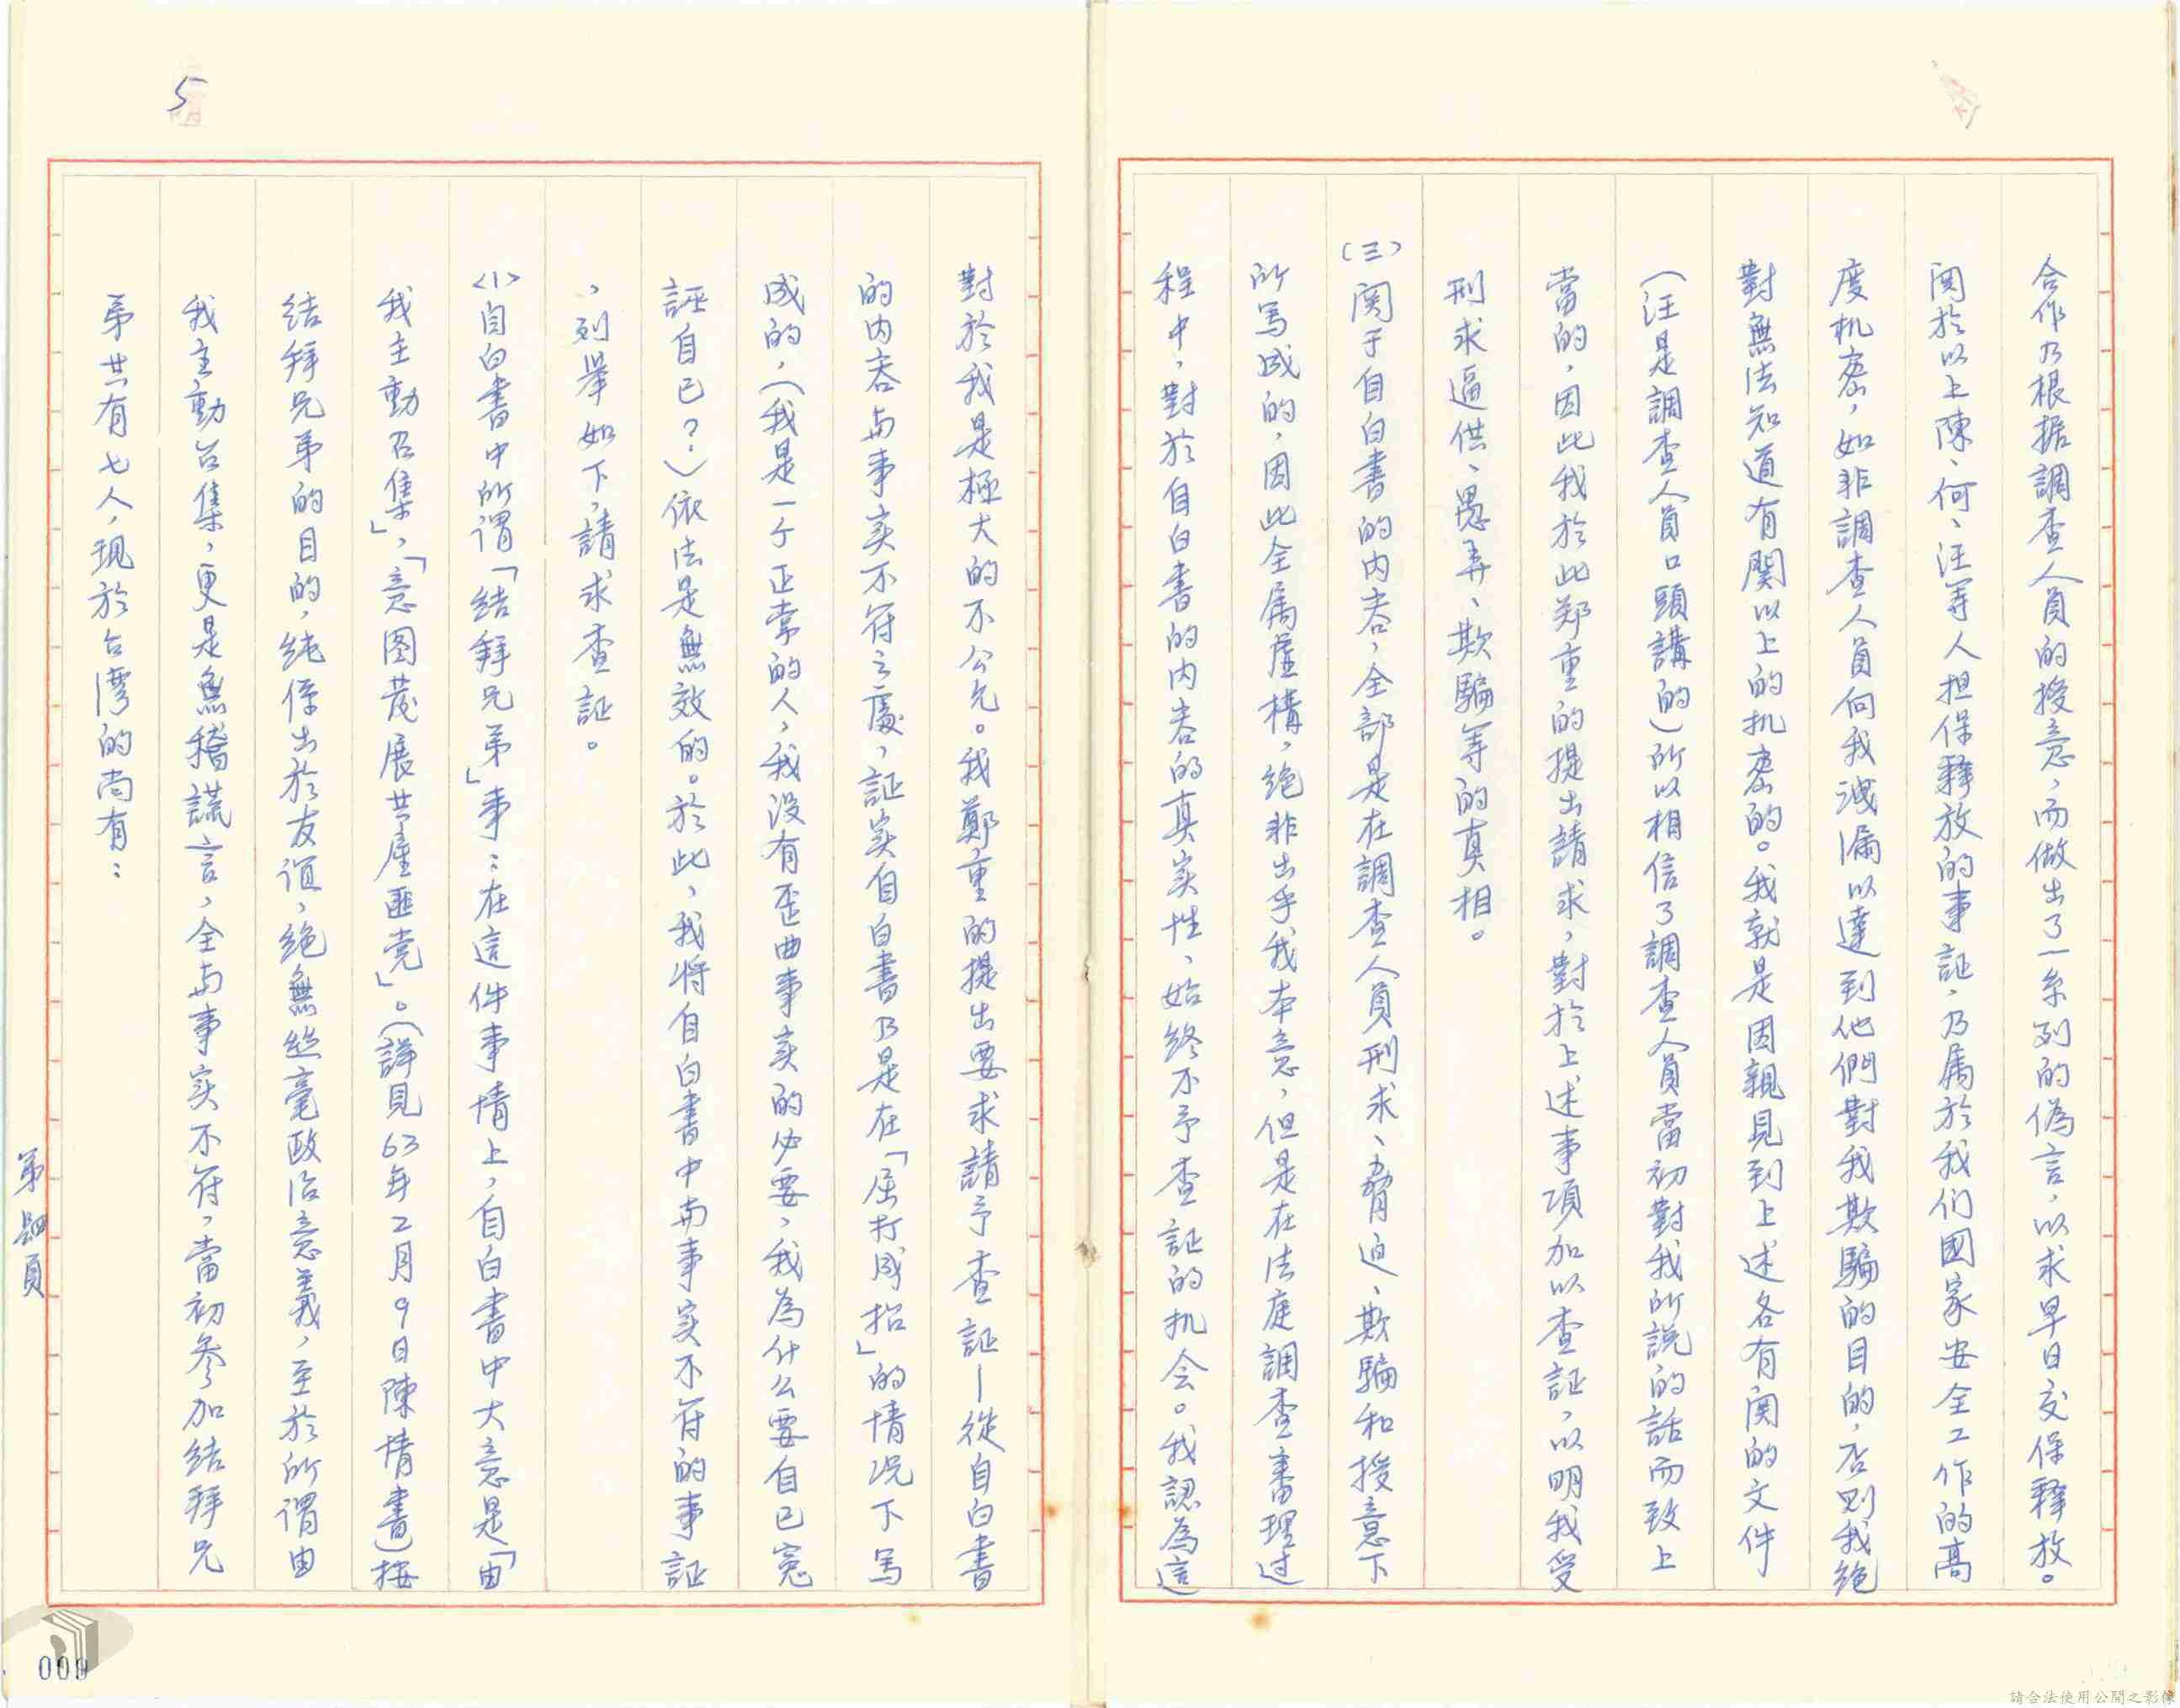 合作乃根据調查人員的授意，而做出了一系列的偽言，以求早日交保釋放。
関於以上陳、何、汪等人担保釋放的事証，乃属於我们國家安全工作的高
度机密，如非調查人員向我洩漏以達到他們對我欺騙的目的，否則我絕
對無法知道有関以上的机密的。我就是因親見到上述各有関的文件
（汪是調查人員口頭講的）所以相信了調查人員當初對我所説的話而致上
當的，因此我於此郑重的提出請求，對於上述事項加以查証，以明我受
刑求逼供、愚弄、欺騙等的真相。
(三)関于自白書的内容，全部是在調查人員刑求、脅迫、欺騙和授意下
所写成的，因此全属虛構，絕非出乎我本意，但是在法庭調查審理过
程中，對於自白書的内容的真实性、始終不予查証的机会。我認為這
對於我是極大的不公允。我鄭重的提出要求請予查証—從自白書
的内容与事实不符之處，証实自白書乃是在「屈打成招」的情況下写
成的，（我是一个正常的人，我没有歪曲事实的必要，我為什么要自己冤
誣自己？）依法是無效的。於此，我将自白書中与事实不符的事証
，列舉如下，請求查証。
<1>自白書中所谓「結拜兄弟」事：在這件事情上，自白書中大意是「由
我主動召集」，「意图发展共產匪党」。（詳見63年2月9日陳情書）按
結拜兄弟的目的，純係出於友谊，絕無絲毫政治意義，至於所谓由
我主動召集，更是無稽謊言，全与事实不符，當初參加結拜兄
弟共有七人，現於台灣的尚有：
第四頁
5
009
請合法使用公開之影像